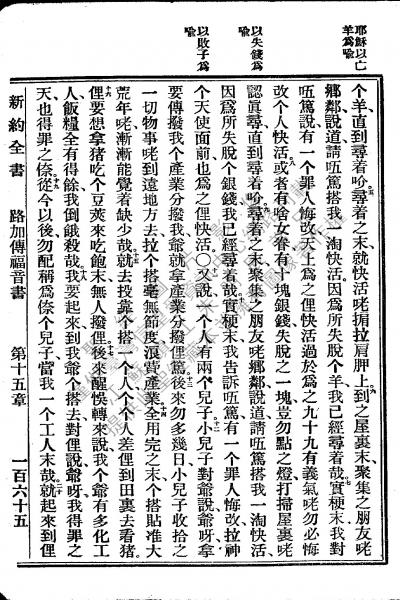 耶穌以亡羊爲喩
以失錢爲喩
以敗子爲喩
个羊直到尋着吤尋着之末就快活咾掮拉肩胛上到之屋裏末聚集之朋友咾
鄉鄰說道請㑚篤搭我一淘快活因爲所失脫个羊我已經尋着哉實梗末我對
㑚篤說有一个罪人悔改天上爲之俚快活過於爲之九十九有義氣咾勿必悔
改个人快活或者有啥女眷有十塊銀錢失脫之一塊豈勿點之燈打掃屋裏咾
認眞尋直到尋着吤尋着之末聚集之朋友咾鄉鄰說道請㑚篤搭我一淘快活
因爲所失脫个銀錢我已經尋着哉實梗末我告訴㑚篤有一个罪人悔改拉神
个天使面前也爲之俚快活〇又說一个人有兩个兒子小兒子對爺說爺呀拿
要傳撥我个產業分撥我爺就拿產業分撥俚篤後來勿多幾日小兒子收拾之
一切物事咾到遠地方去拉个搭毫無節度浪費產業全用完之末个搭貼准大
荒年咾漸漸能覺着缺少哉就去投靠个搭一个人个人差俚到田裏去看猪
俚要想拿猪吃个豆莢來吃飽末無人撥俚後來醒悞轉來說我个爺有多化工
人飯糧全有得餘我倒餓殺哉我要起來到我爺个搭去對俚說爺呀我得罪之
天也得罪之倷從今以後勿配稱爲倷个兒子當我一个工人末哉就起來到俚
新約全書 路加傳福音書 第十五章 一百六十五